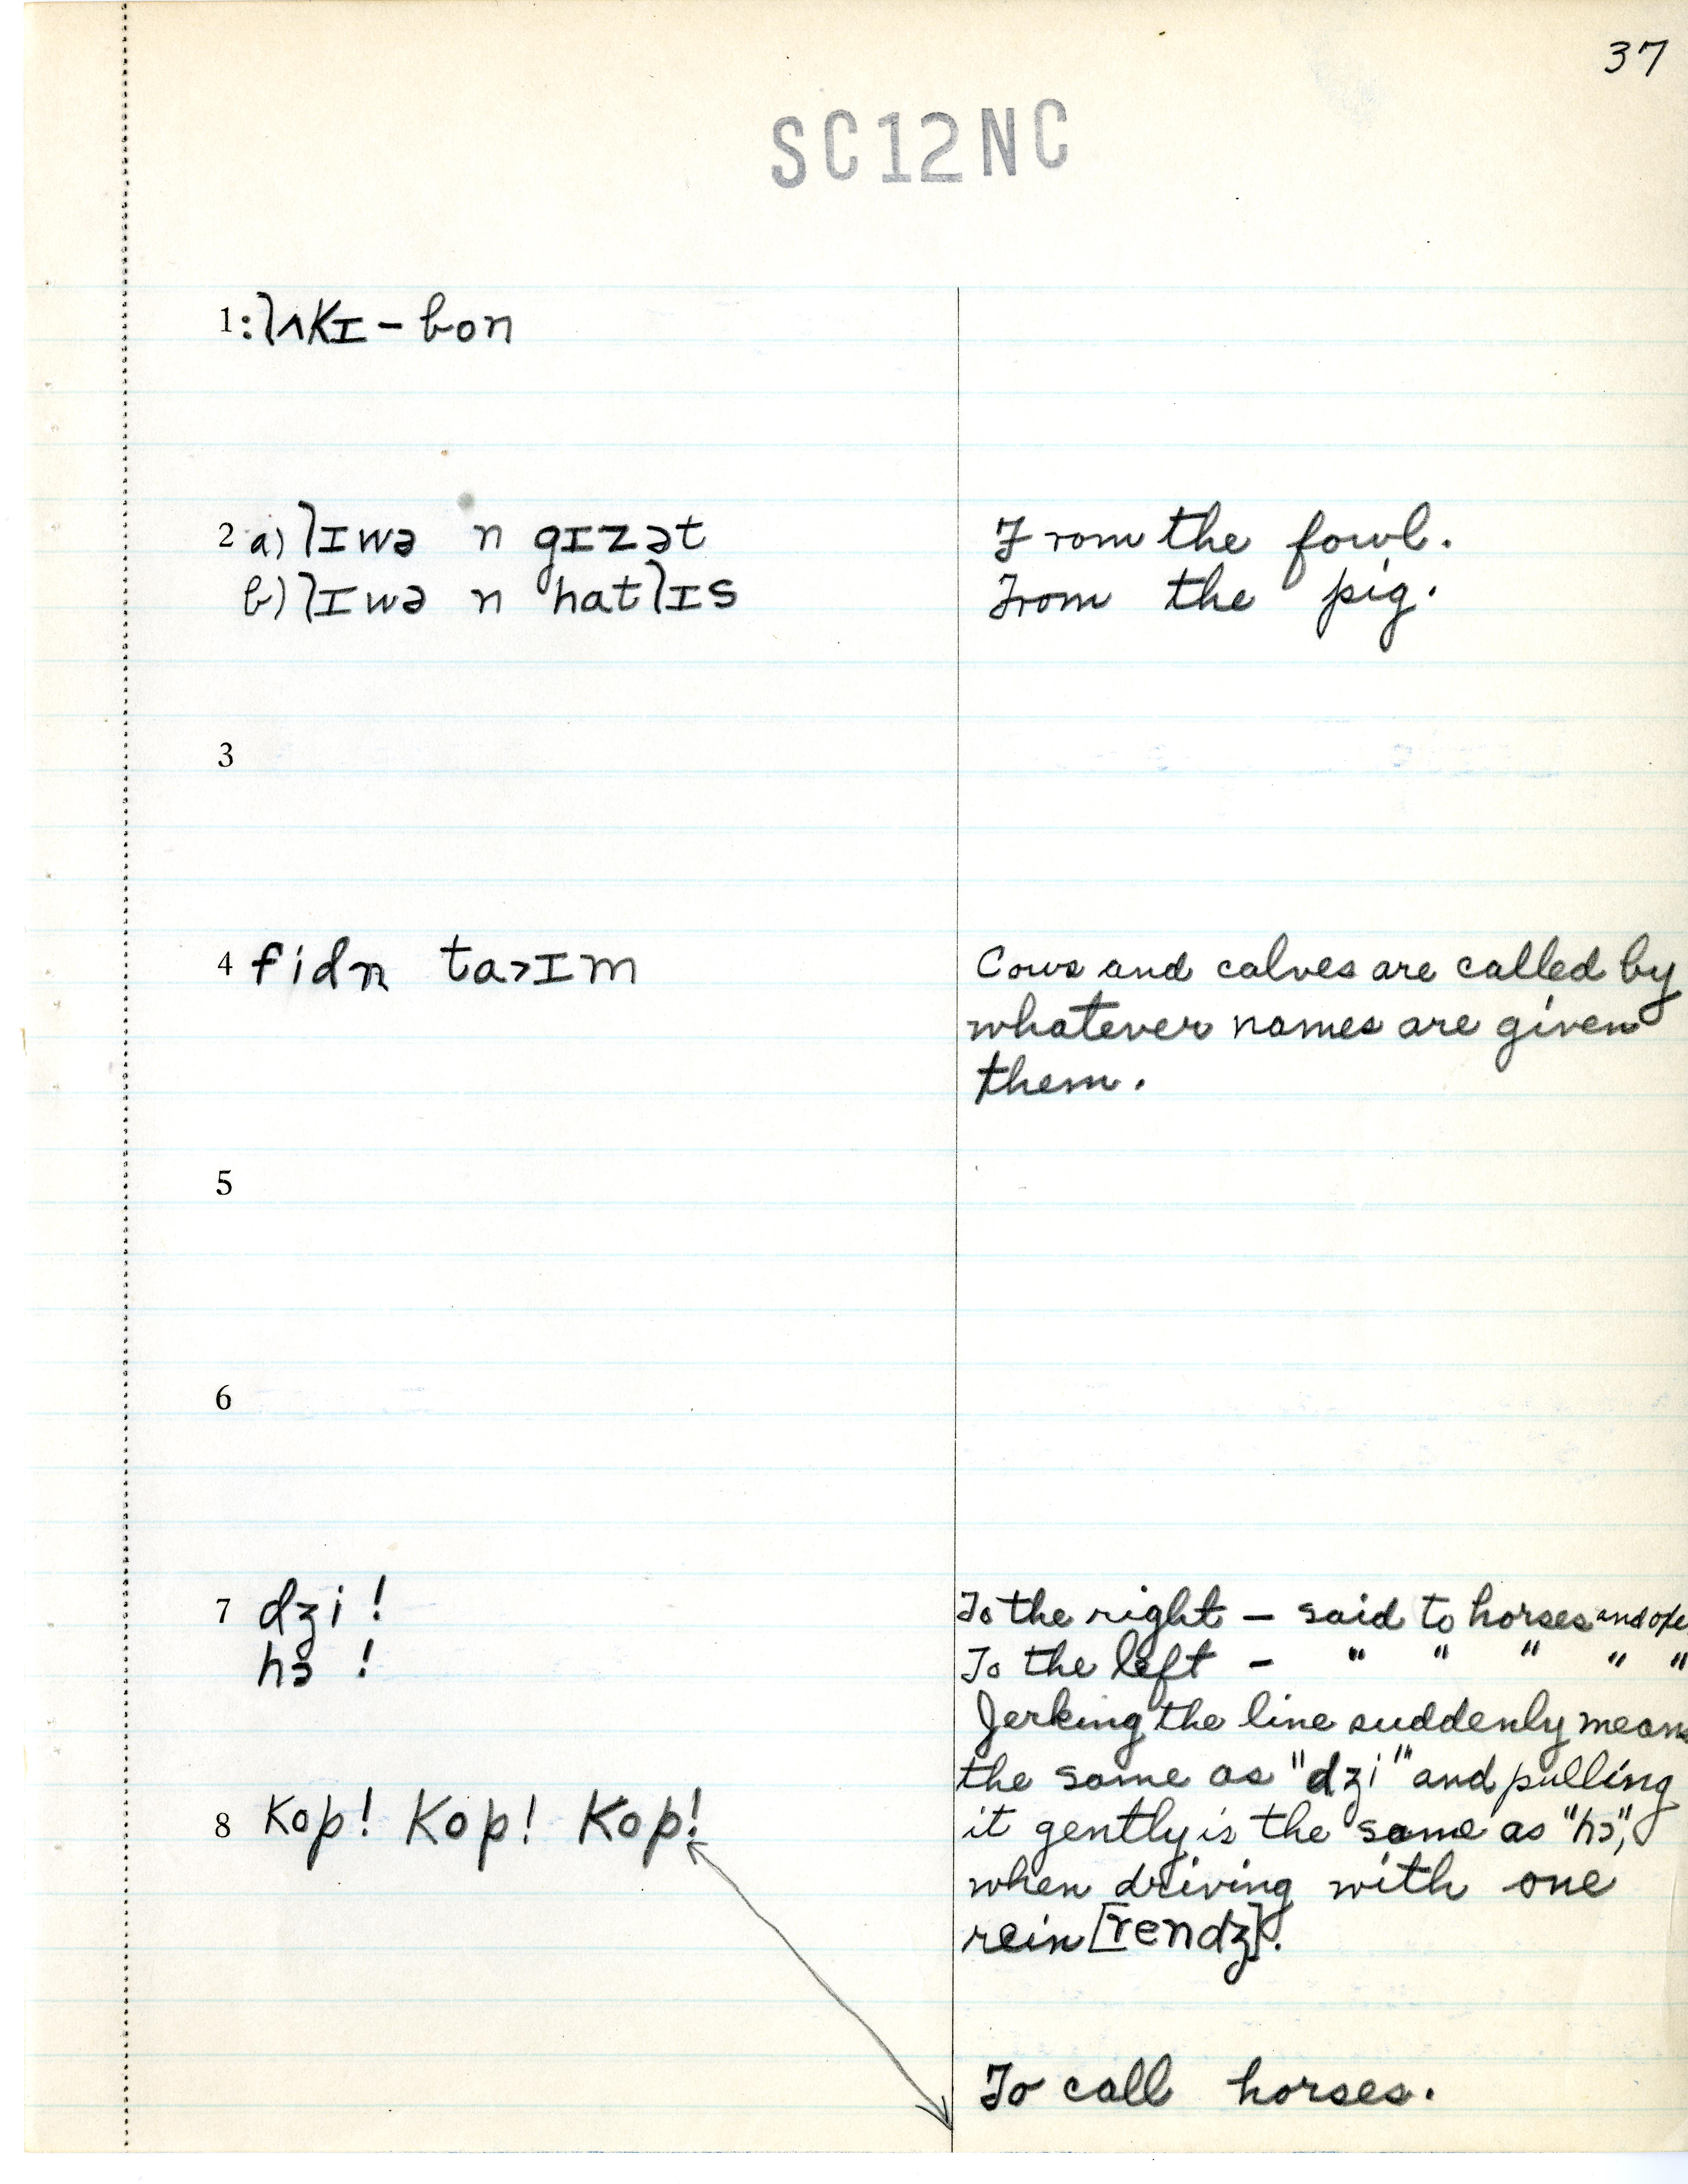 37
SC12NC
1 : lʌkɪ - bon
2 a) lɪwə n gɪzət From the fowl.
b) lɪwə n hatlɪs From the pig.
3
4 fidn taɪm Cows and calves are called by
whatever names are given
them.
5
6
7 dʒi ! To the right — said to horses and oxe
hɔ ! To the left — " " " " "
Jerking the line suddenly means
the same as "dʒi" and pulling
8 kop! kop! kop! it gently is the same as "hɔ,"
when driving with one
rein [rendʒ].
To call horses.